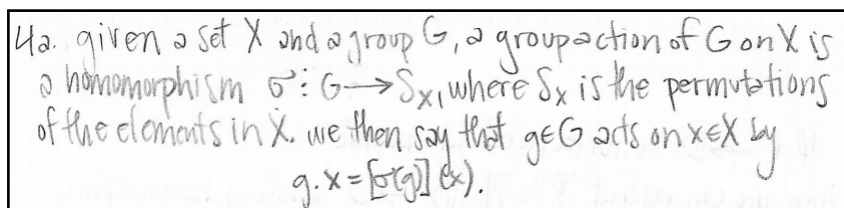 4a. given a set X and a group G, a group action of G on X is
a homomorphism σ: G→S_X, where S_X is the permutations
of the elements in X. we then say that g∈G acts on x∈X by
g.x=[σ(g)](x).